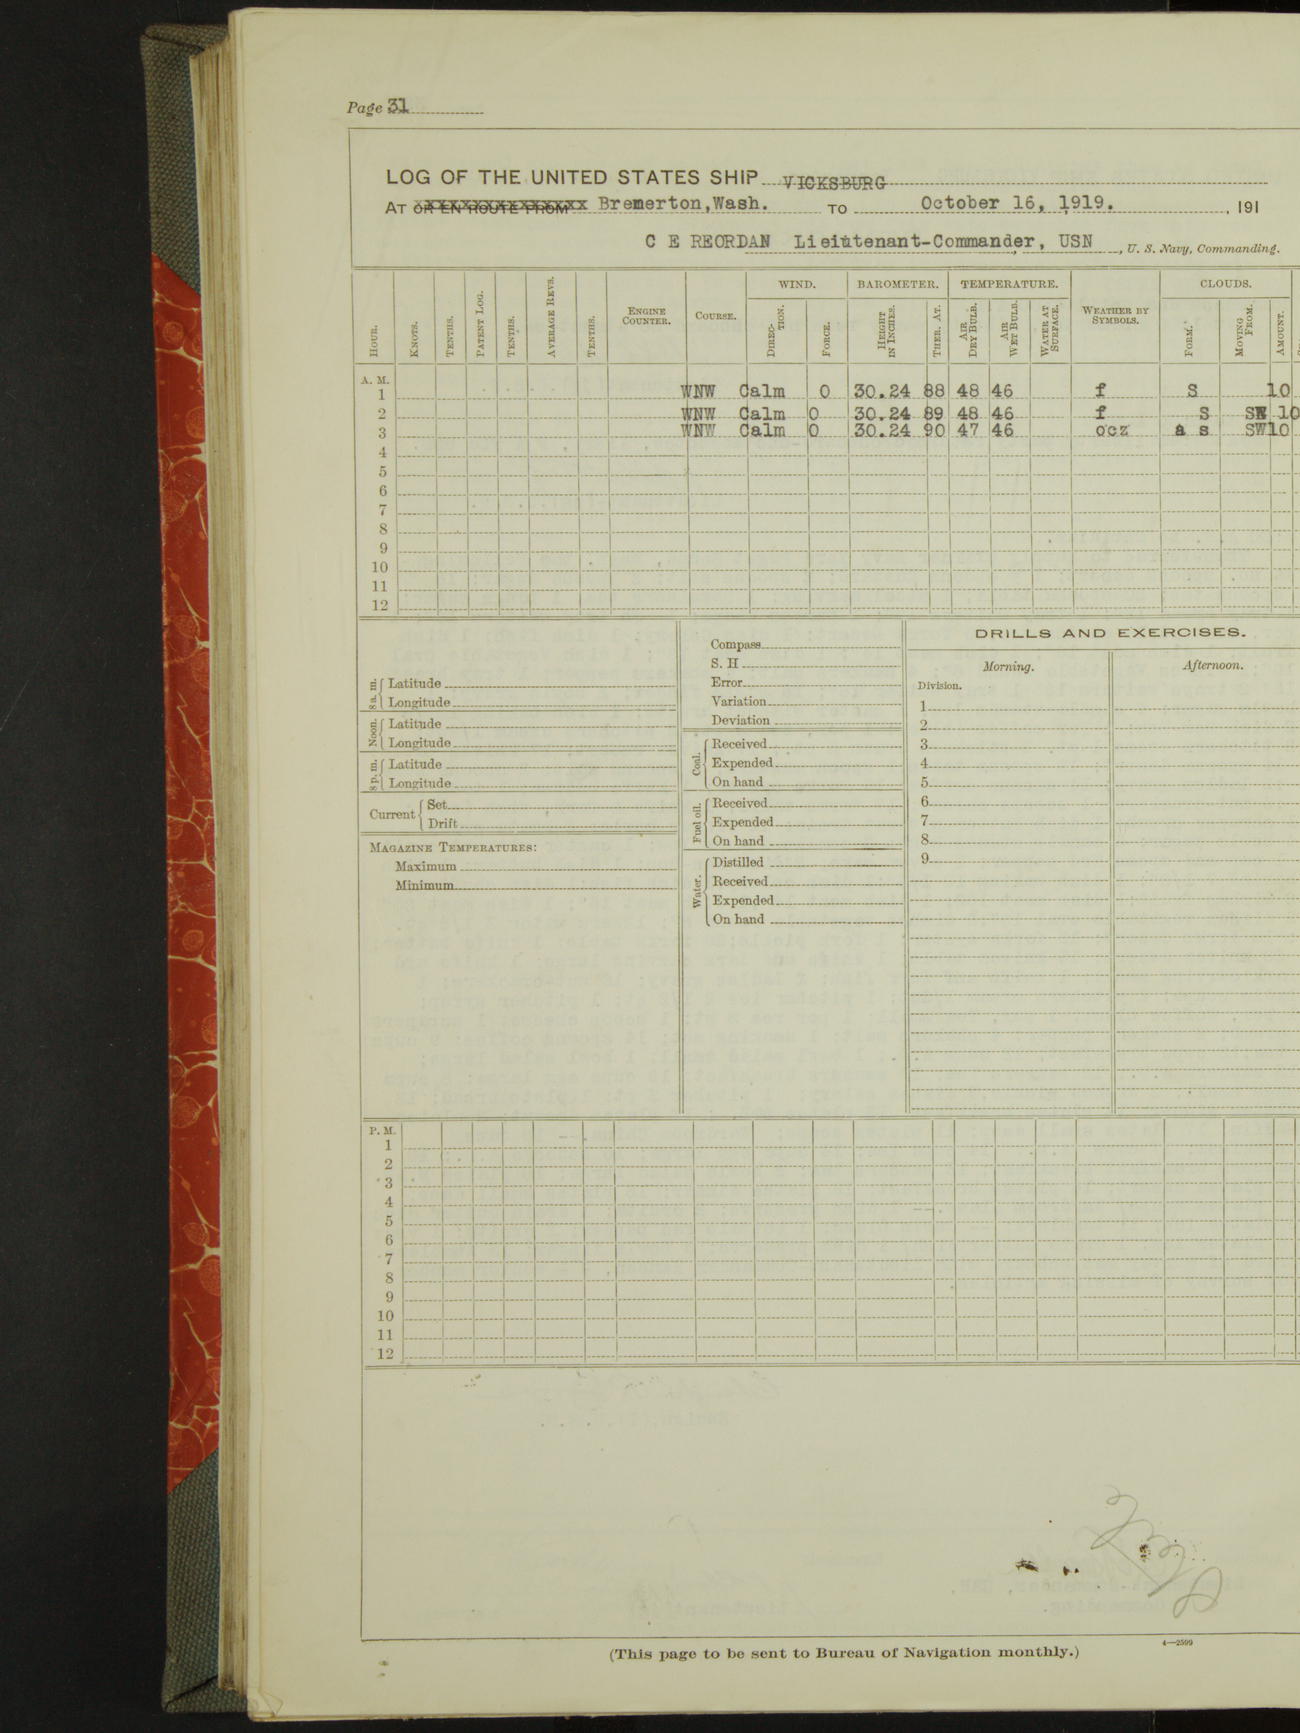 Page 31
LOG OF THE UNITED STATES SHIP VICKSBURG
AT OR EN ROUTE FROM Bremerton,Wash. TO October 16, 1919. , 191
C E REORDAN Lieiutenant-Commander, USN , U. S. Navy, Commanding.
WIND. BAROMETER. TEMPERATURE. CLOUDS.
HOUR. KNOTS. TENTHS. PATENT LOG. TENTHS. AVERAGE REVS. TENTHS. ENGINE COUNTER. COURSE. DIRECTION. FORCE. HEIGHT IN INCHES. THER. AT. AIR DRY BULB. AIR WET BULB. WATER AT SURFACE. WEATHER BY SYMBOLS. FORM. MOVING FROM. AMOUNT.
A. M.
1 WNW Calm 0 30.24 88 48 46 f S 10
2 WNW Calm 0 30.24 89 48 46 f S SW 10
3 WNW Calm 0 30.24 90 47 46 ocz a s SW10
4
5
6
7
8
9
10
11
12
8 a. m. Latitude
Longitude
Noon. Latitude
Longitude
8 p. m. Latitude
Longitude
Current Set
Drift
MAGAZINE TEMPERATURES:
Maximum
Minimum
Compass
S. H
Error
Variation
Deviation
Coal. Received
Expended
On hand
Fuel oil. Received
Expended
On hand
Water. Distilled
Received
Expended
On hand
DRILLS AND EXERCISES.
Morning. Afternoon.
Division.
1
2
3
4
5
6
7
8
9
P. M.
1
2
3
4
5
6
7
8
9
10
11
12
4—2599
(This page to be sent to Bureau of Navigation monthly.)